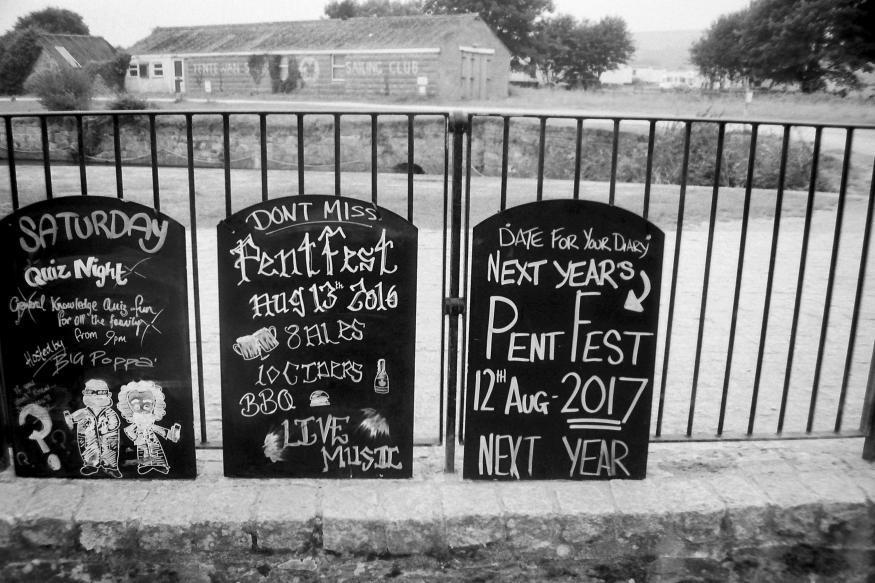 PENTEWAN S SAILING CLUB
SATURDAY
Quiz Night
General Knowledge Quiz-fun
For all the family
from 9pm
Hosted by
'BIG POPPA'
?
DONT MISS
PentFest
Aug 13th 2016
8 ALES
10 CIDERS
BBQ
LIVE
MUSIC
DATE FOR YOUR DIARY
NEXT YEARS
PENT FEST
12TH AUG - 2017
NEXT YEAR